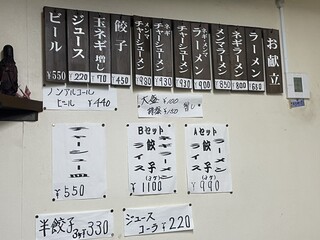 お献立
ラーメン ¥610
ネギラーメン ¥800
メンマラーメン
チャーシューメン
ネギチャーシューメン
メンマチャーシューメン
餃子 ¥450
玉ネギ増し ¥70
ジュース ¥220
ビール ¥550
ノンアルコール
ビール ¥440
大盛 ¥100
増し
Aセット
ラーメン
餃子(3ケ)
ライス
¥990
Bセット
ラーメン
餃子(3ケ)
ライス
¥1100
チャーシュー皿
¥550
半餃子3ケ 330
ジュース
コーラ ¥220